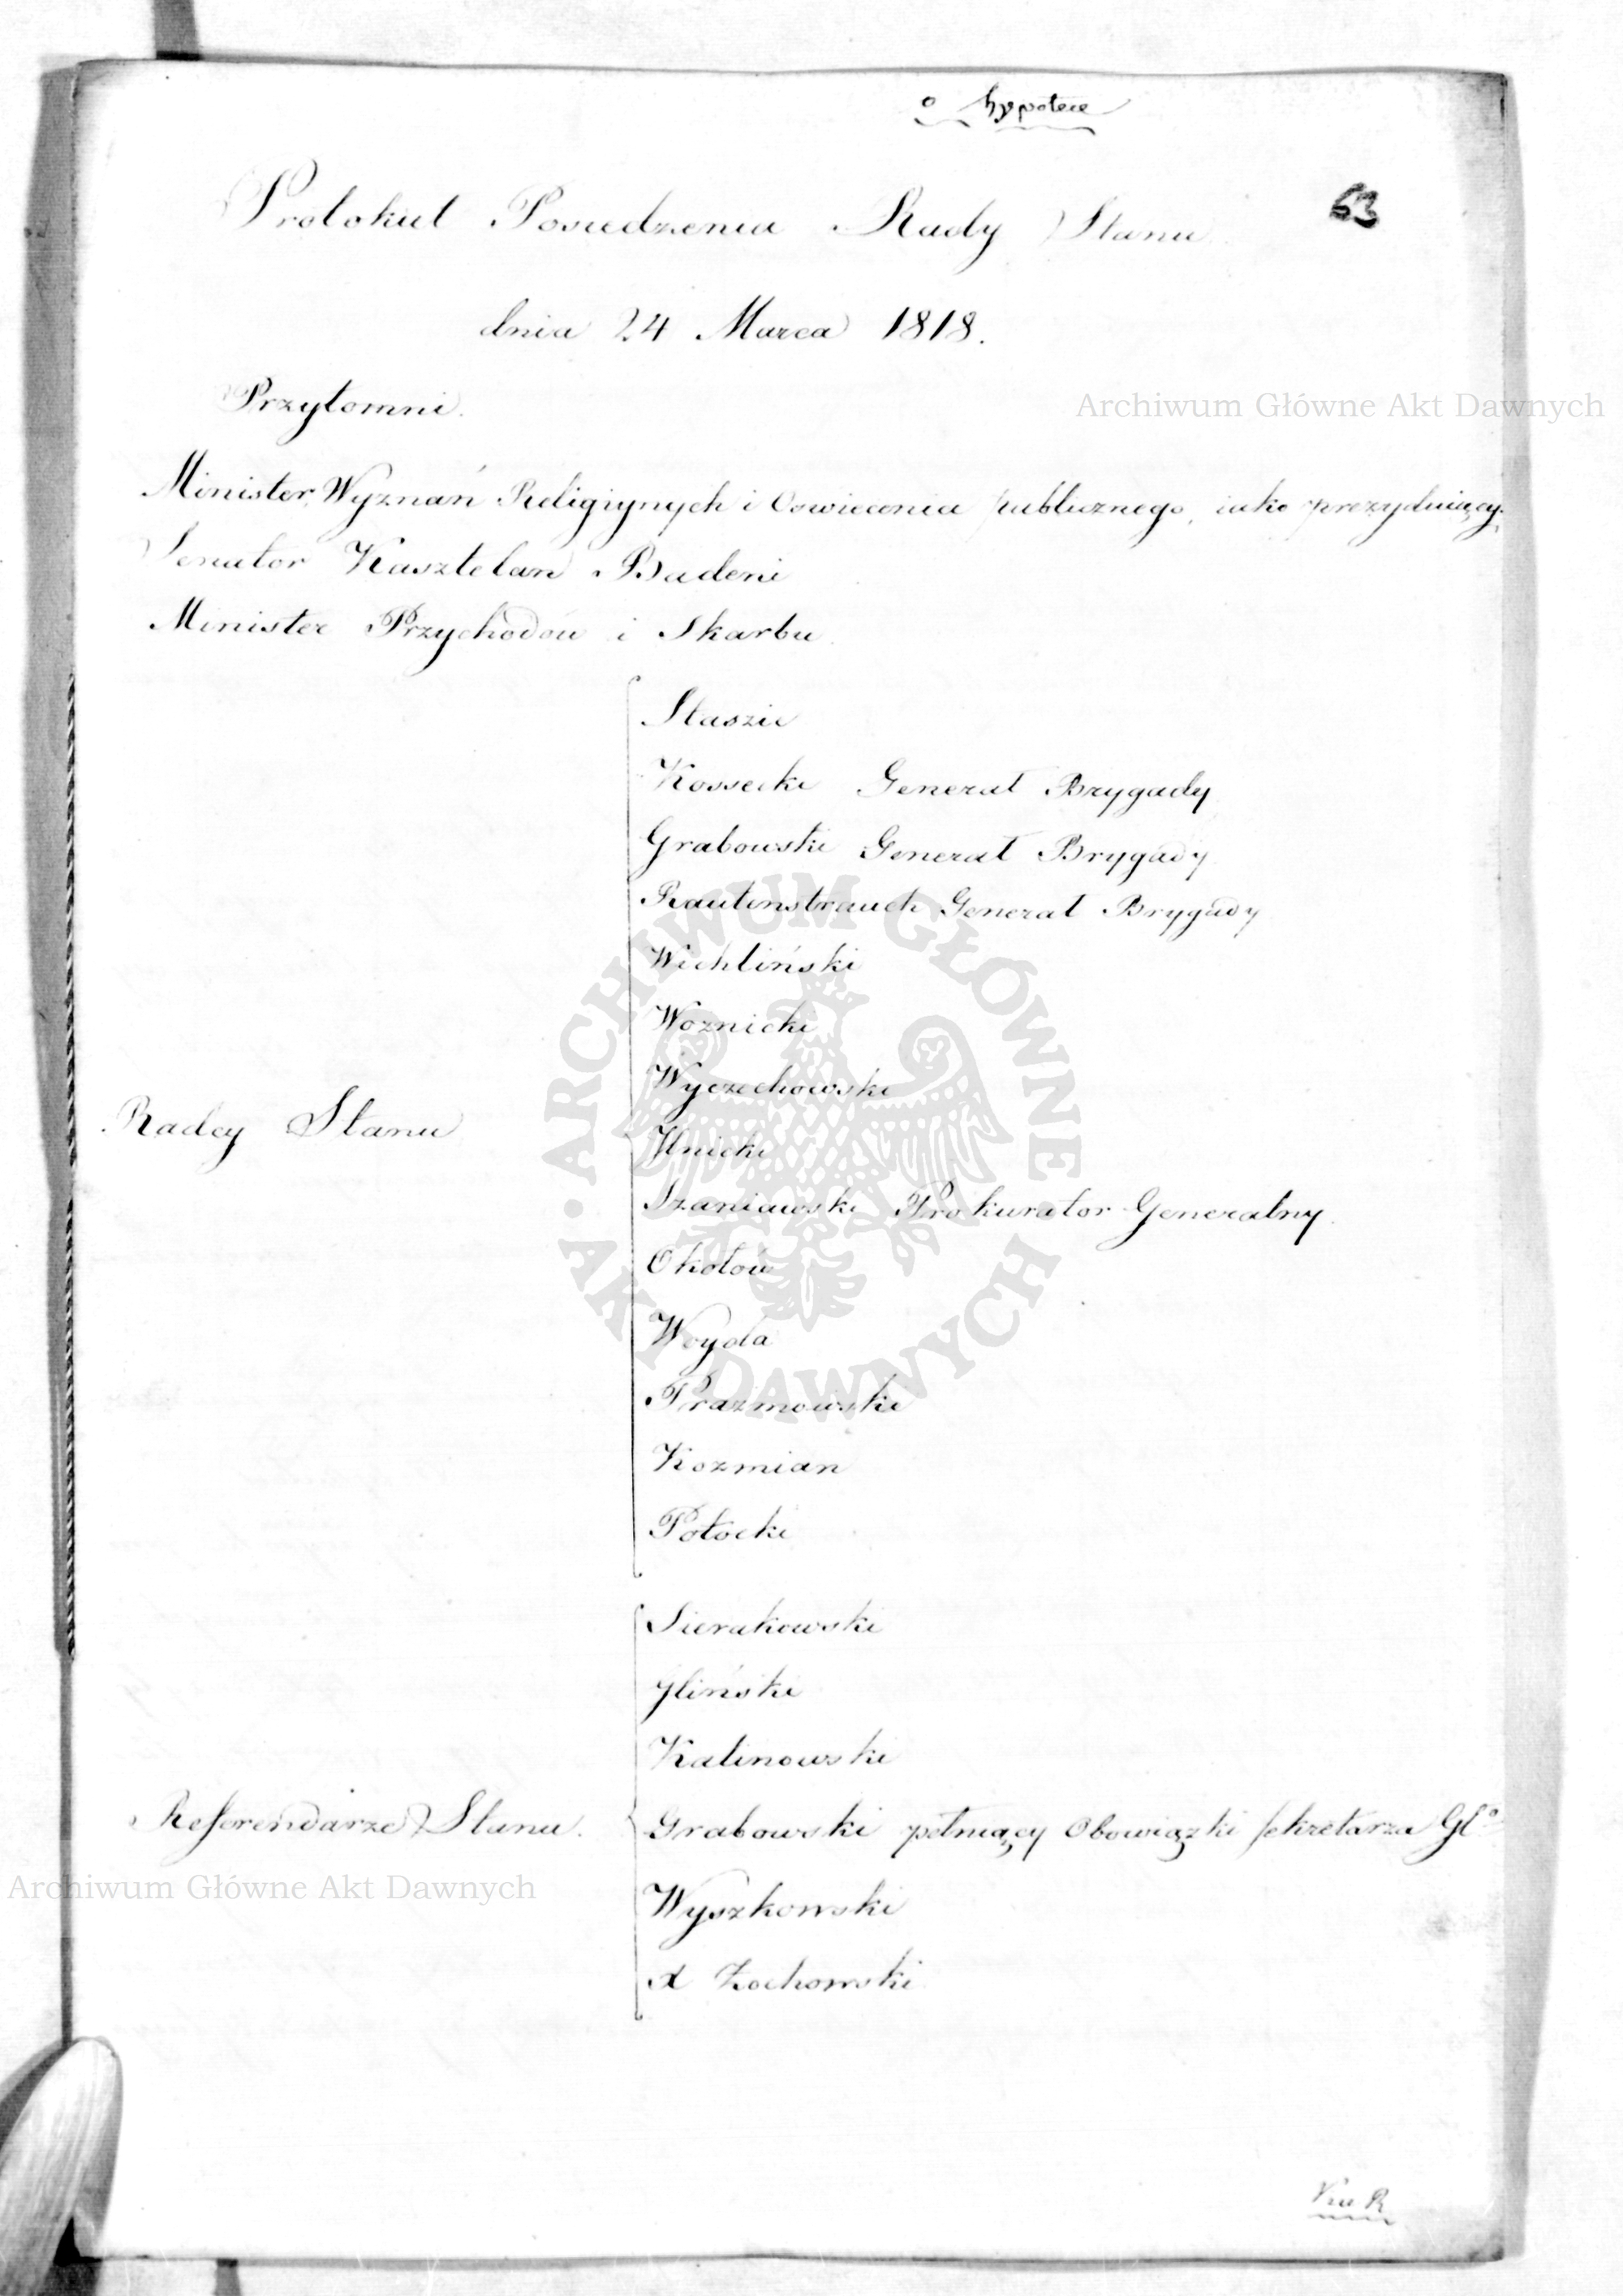 o hypotece
63
Protokuł Posiedzenia Rady Stanu
dnia 24 Marca 1818.
Przytomni.
Archiwum Główne Akt Dawnych
Minister Wyznań Religiynych i Oswiecenia publicznego, iako prezyduiący.
Senator Kasztelan Badeni
Minister Przychodów i Skarbu
Staszic
Kossecki Generał Brygady
Grabowski Generał Brygady
Rautenstrauch Generał Brygady
Wichliński
Woznicki
Wyczechowski
Radcy Stanu
Ilnicki
Szaniawski Prokurator Generalny.
Okołow
Woyda
Prazmowski
Kozmian
Potocki
Sierakowski
Gliński
Kalinowski
Referendarze Stanu.
Grabowski pełniący Obowiązki sekretarza Gło
Archiwum Główne Akt Dawnych
Wyszkowski
X Zochowski
ARCHIWUM GŁÓWNE • AKT DAWNYCH •